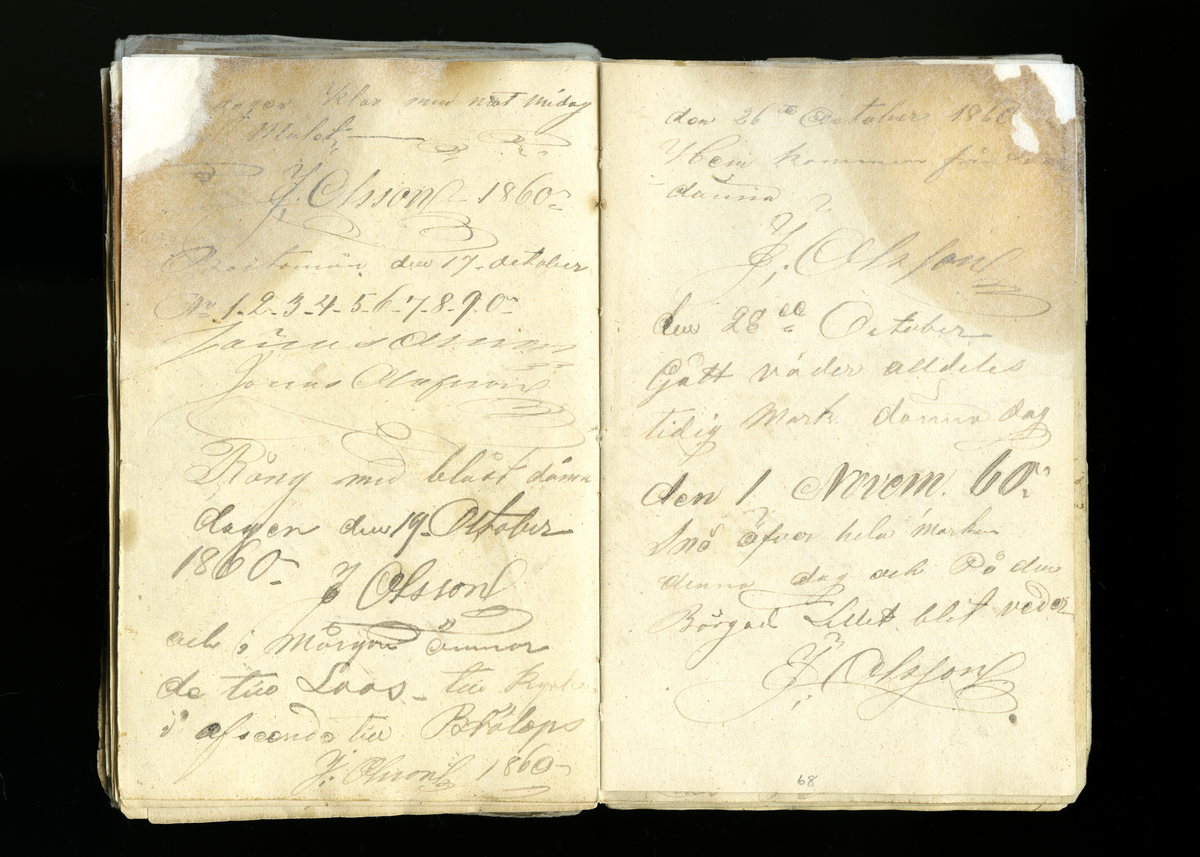 dagen Klar med
J. Olsson 1860
den 17 October
No 1-2-3-4-5-6-7-8-9-0
Jonas Olofsson
Räng med blåst dänna
dagen den 19 October
1860
J Olsson
och i Mårgon ämnar
de till Loos till Kyrka
i afseende till Brölops
J. Olsson 1860
den 26 de October 1860
Hem kommen från
J. Olsson
den 28 de October
Gått väder alldeles
tidig Mark danna dag
den 1 Novem. 60
Snö öfver hela marken
denna dag och På den
Börjad Lillet blit veder
J. Olsson
68